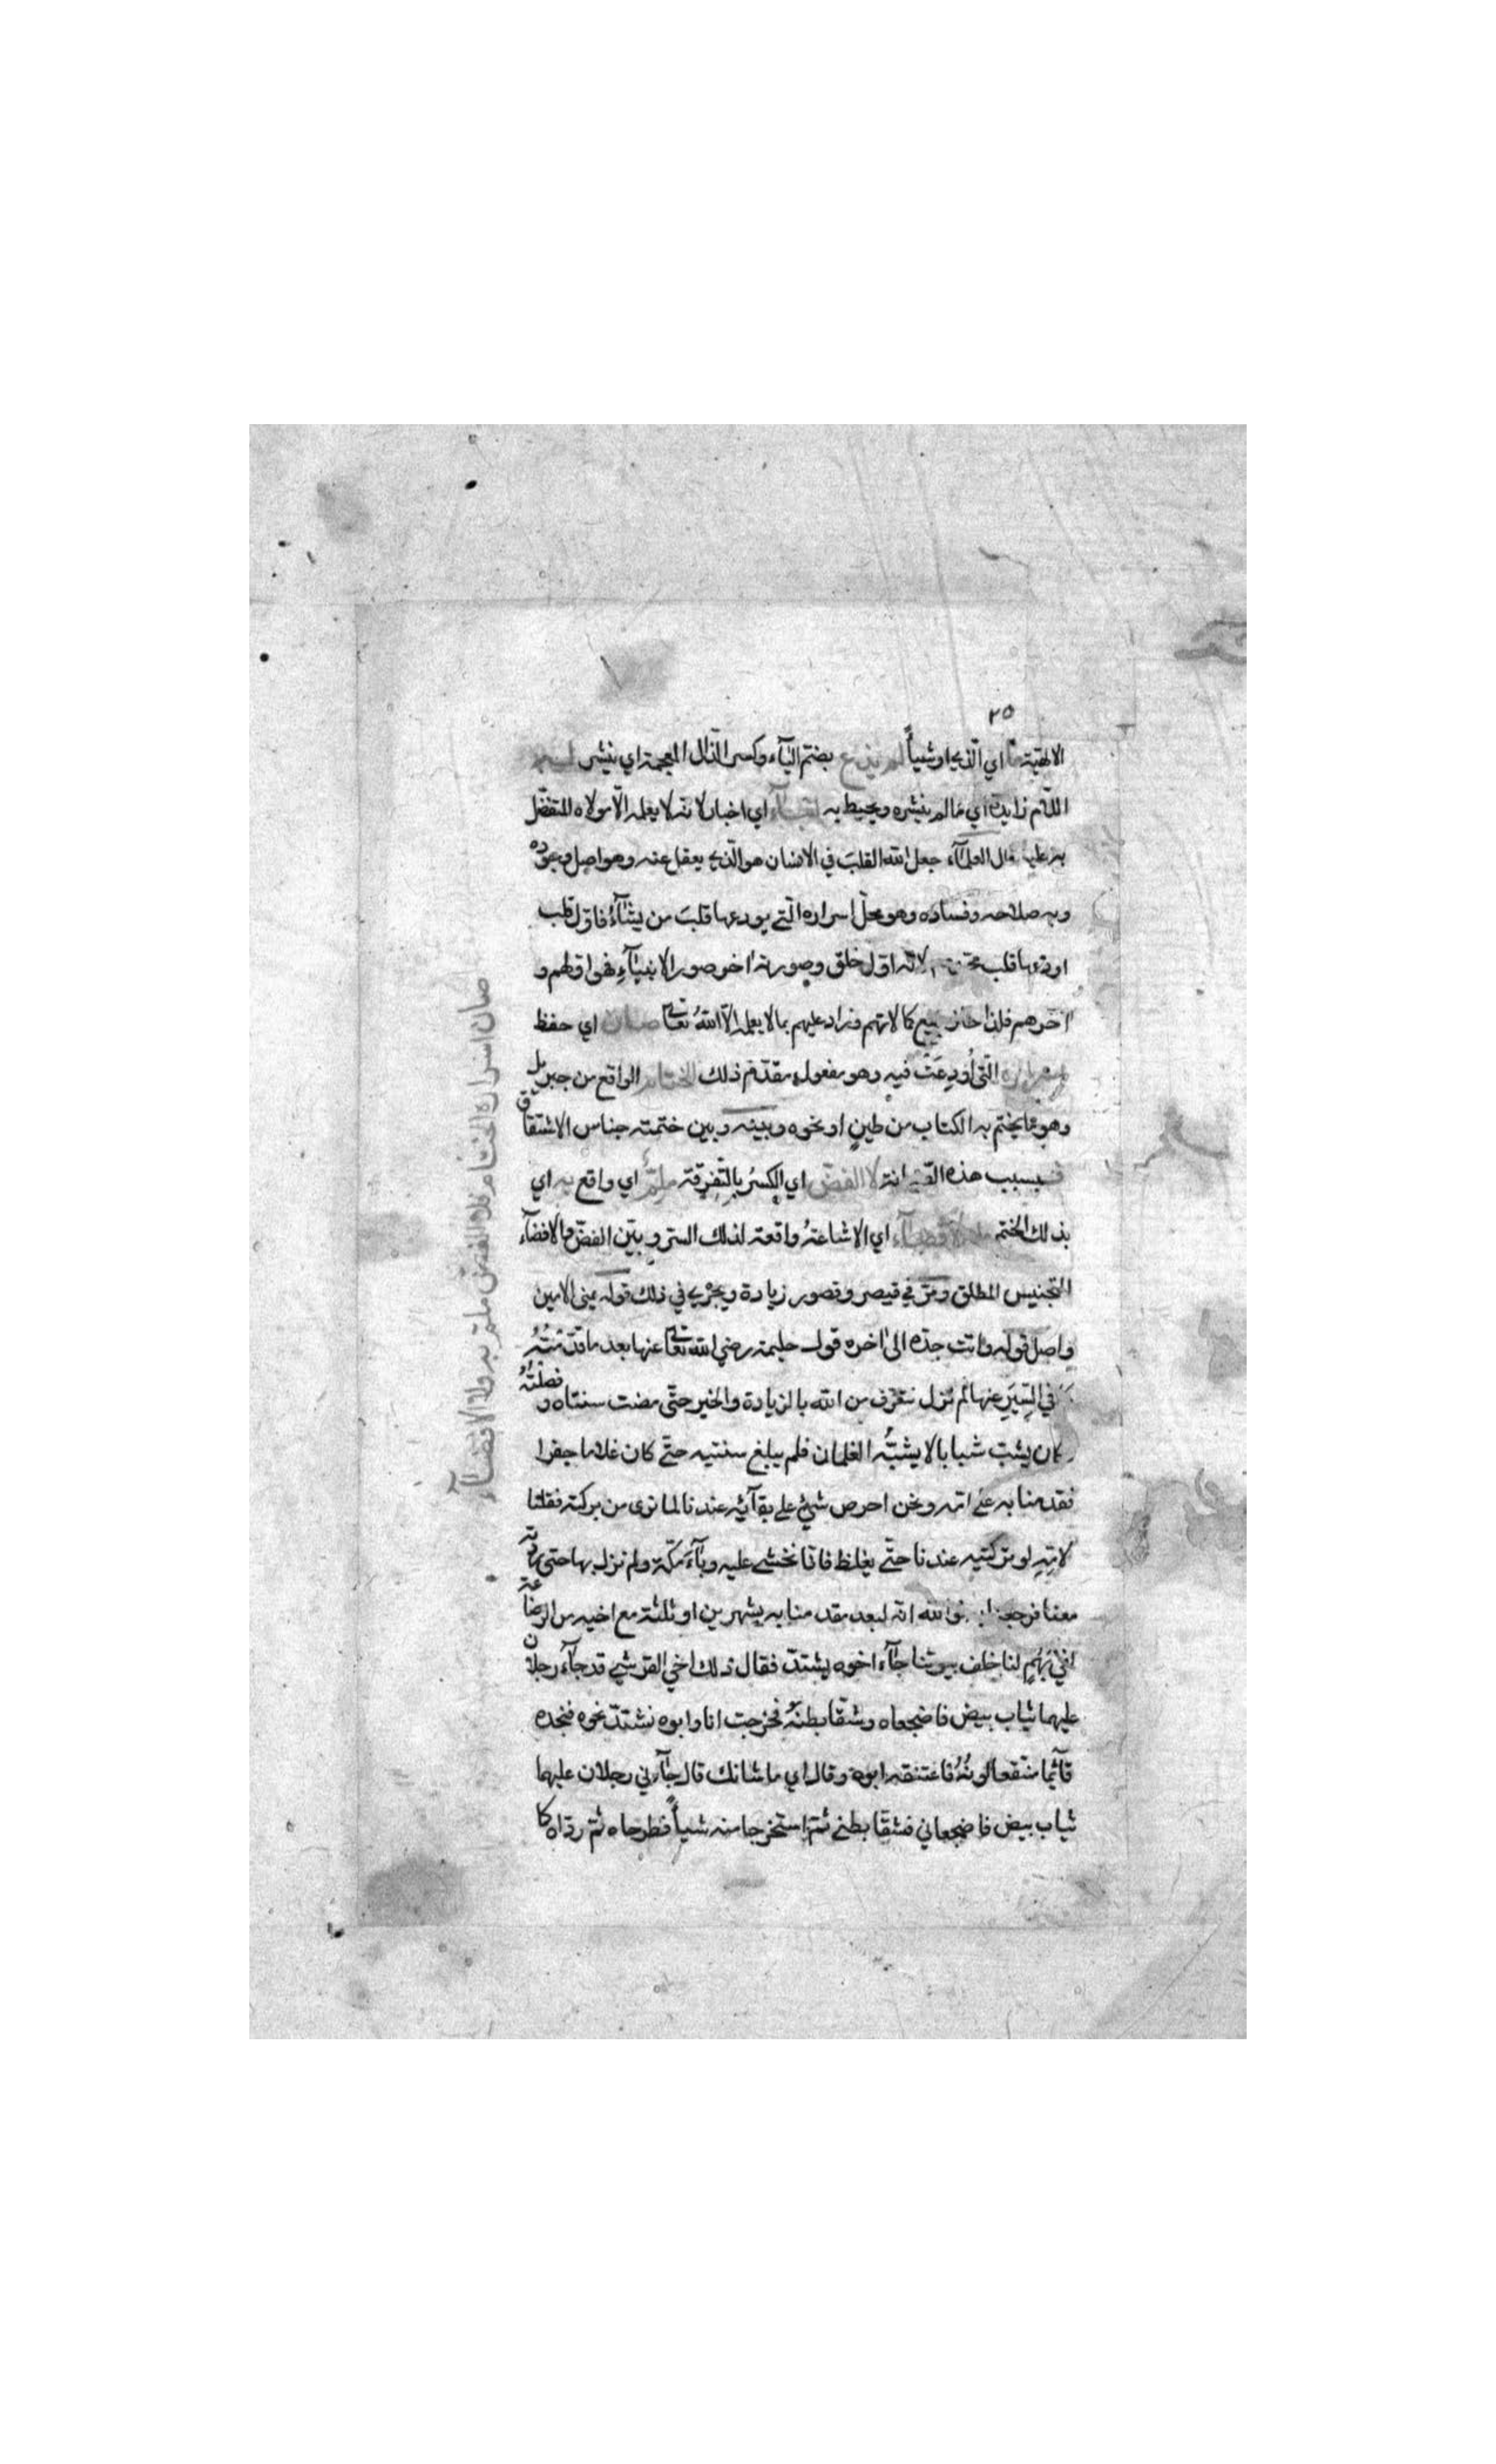 ٢٥
الالهيّة ما اي الّذي او شيأً لم يذع بضمّ اليآء وكسر الذّال المعجمة اي ينشر له
اللّام زايدة اي ما لم ينشره ويحيط به انبآء اي اخبار لانه لا يعلمه الّا مولاه المتفضّل
به عليه قال العلمآء جعل الله القلبَ في الانسان هو الّذي يعقل عنه وهو اصل وجوده
وبه صلاحه وفساده وهو محلّ اسراره الّتي يودعها قلبَ من يشآءُ فاوّل قلب
اودعها قلب محمّد لانّه اوّل خلق وصورته اخر صور الانبيآءِ فهو اوّلهم و
اخرهم فلذا حاز جميع كمالاتهم وزاد عليهم بما لا يعلمه الّا اللهُ تعالى صان اي حفظ
اسراره الّتي أُودِعَتْ فيه وهو مفعول مقدّم ذلك الختام الواقع من جبريل
وهو ما يختم به الكتاب من طينٍ او نحوه وبينه وبين ختمته جناس الاشتقاق
فبسبب هذه انه لا الفضّ اي الكسرُ بالتّفرِقَة ملِمٌّ اي واقع به اي
بذلك الختم ولا الافضآء اي الاشاعةُ واقعة لذلك الستر وبين الفضّ والافضآء
التجنيس المطلق ومرّ في قيصر وقصور زيادة ويجري في ذلك قوله يمنى الامين
واصل قوله واتت جدّه الى اخره قول حليمة رضي الله تعالى عنها بعد ما قدّمْتُهُ
في السِّيَرِ عنها لم نزل نتعرّف من الله بالزيادة والخير حتّى مضت سنتاه وفصلْتُهُ
وكان يشبّ شبابا لا يشبُّه الغلمان فلم يبلغ سنتيه حتّى كان غلاما جفرا
فقدمنا به على امّه ونحن احرص شيءٍ على بقآئه عندنا لما نرى من بركته فقلنا
لامّهِ لو تركتيه عندنا حتّى يغلظ فانّا نخشى عليه وبآءَ مكّة ولم نزل بها حتى ردّته
معنا فرجعنا به فوالله انّه لبعد مقدمنا به بشهرين او ثلثة مع اخيه من الرضاعة
لفي بَهْمٍ لنا خلف بيوتنا جآء اخوه يشتدّ فقال ذلك اخي القرشي قد جآء رجلان
عليهما ثياب بيض فاضجعاه وشقّا بطنَهُ فخرجت انا وابوه نشتدّ نحوه فنجده
قآئما منتقعا لونُهُ فاعتنقه ابوه وقال اي ما شانك قال جآءني رجلان عليهما
ثياب بيض فاضجعاني فشقّا بطني ثمّ استخرجا منه شيأً فطرحاه ثمّ ردّاه كما
صان اسراره الختام فلا الفضّ ملمّ به ولا الافضآء